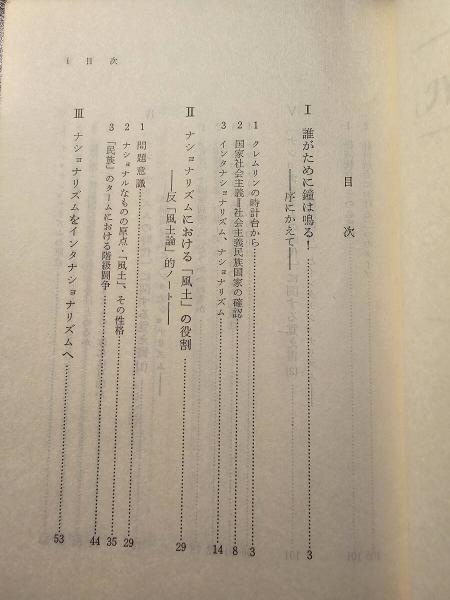 目次
Ⅰ 誰がために鐘は鳴る！……3
――序にかえて――
1 クレムリンの時計台から……3
2 国家社会主義＝社会主義民族国家の確認……8
3 インタナショナリズム ナショナリズム……14
Ⅱ ナショナリズムにおける「風土」の役割……29
――反「風土論」的ノート――
1 問題意識……29
2 ナショナルなものの原点・「風土」、その性格……35
3 「民族」のタームにおける階級闘争……44
Ⅲ ナショナリズムをインタナショナリズムへ……53
i 目次